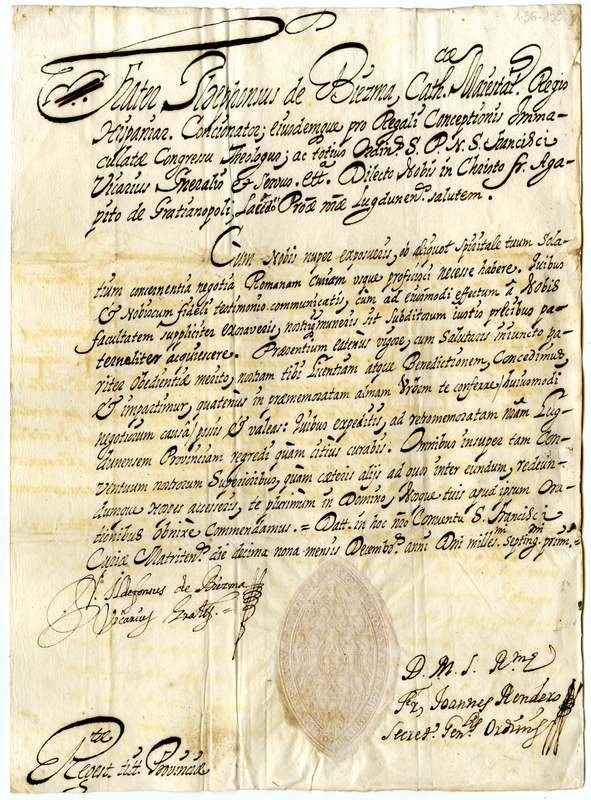 1-36-153
Frater Ildephonsus de Biezma, Cath.cæ Maiestat. Regio
Hispaniar. Concionator; eiusdemque pro Regali Conceptionis Imma-
culatæ Congressu Theologus; ac totius Ordin.s S. P. N. S. Francisci
Vicarius Gñralis & Servus. ett.a Dilecto Nobis in Christo fr. Aga-
pito de Gratianopoli, Sacerdo Proæ nræ Lugdunen. salutem.
Cum Nobis nuper exposueris, ob aliquot spiritale tuum Sola-
tium concernentia negotia Romanam Curiam usque proficisci necesse habere. Quibus
& Nobiscum fideli testimonio communicatis, cum ad eiusmodi effectum à Nobis
facultatem suppliciter exoraveris, nostriq muneris sit subditorum iustis precibus pa-
ternaliter acquiescere. Præsentium eatenus vigore, cum Salutaris iniuncto pa-
riter Obedientiæ merito, nostram tibi Licentiam atque Benedictionem, Concedimus,
& impartimur, quatenus in præmemoratam almam Urbem te conferre, huiusmodi
negotiorum causa, possis & valeas: Quibus expeditis, ad retromemoratam nram Lug-
dunensem Provinciam regredi quàm citius curabis. Omnibus insuper tam Con-
ventuum nostrorum Superioribus, quàm cæteris aliis ad quos inter eundum, redeun-
dumque te accesseris, te plurimùm in Domino, Nosque tuis apud ipsum Ora-
tionibus obnixe Commendamus. = Datt. in hoc nro Conventu S. Francisci
Curiæ Matriten. die decima nona mensis Decemb. anni Dni milles.mi septing.mi primi. =
Fr. Ildefonsus de Biezma
Vicarius Gralis. =
D. M. S. Rmæ
Fr. Joannes Rendero
Secret. Gen.lis Ordinis
Regest. ttæ Provinciæ